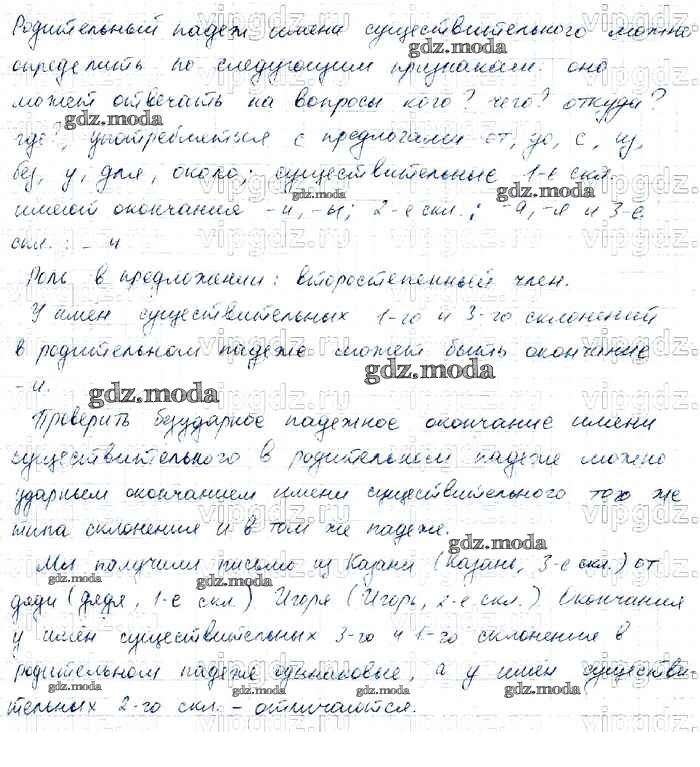 Родительный падеж имени существительного можно
определить по следующим признакам: оно
может отвечать на вопросы кого? чего? откуда?
где?, употребляться с предлогами от, до, с, из,
без, у, для, около; существительные 1-е скл.
имеют окончания -и, -ы; 2-е скл.: -а, -я и 3-е
скл.: -и
Роль в предложении: второстепенный член.
У имен существительных 1-го и 3-го склонений
в родительном падеже может быть окончание
-и.
Проверить безударное падежное окончание имени
существительного в родительном падеже можно
ударным окончанием имени существительного того же
типа склонения и в том же падеже.
Мы получили письмо из Казани (Казань, 3-е скл.) от
дяди (дядя, 1-е скл.) Игоря (Игорь, 2-е скл.) Окончания
у имён существительных 3-го и 1-го склонения в
родительном падеже одинаковые, а у имён существи-
тельных 2-го скл. - отличаются.